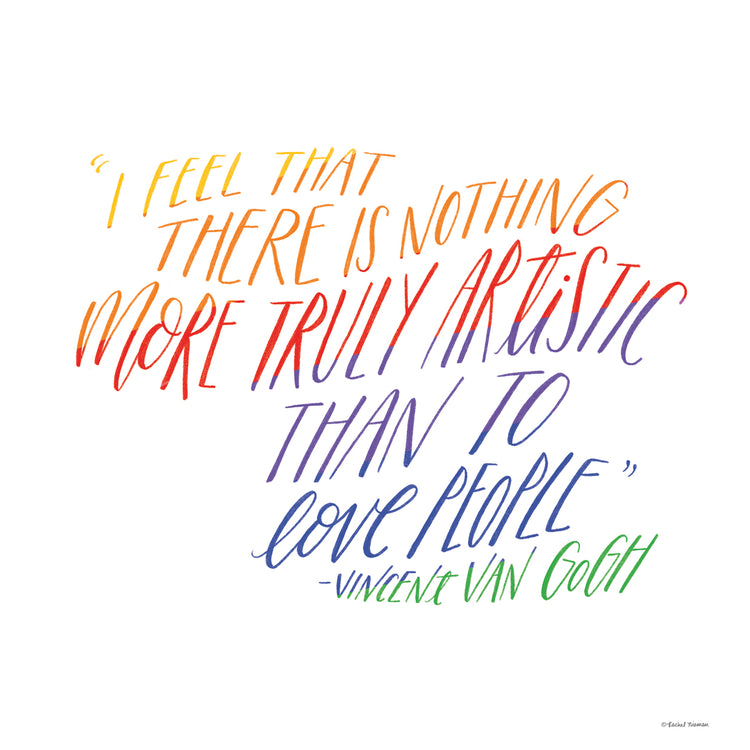 “I FEEL THAT
THERE IS NOTHING
MORE TRULY ARTISTIC
THAN TO
love PEOPLE”
-VINCENt VAN GOGH
© Rachel Nieman